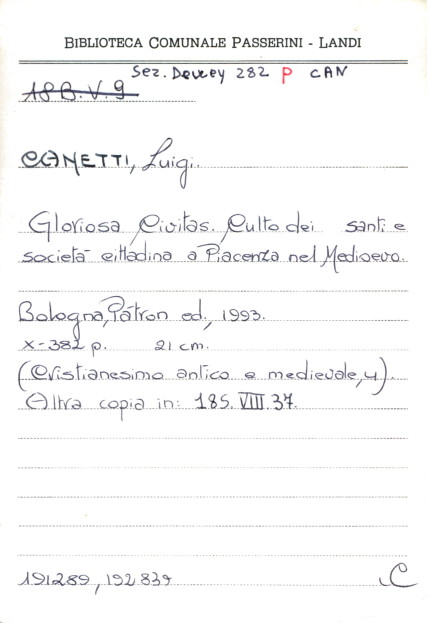 BIBLIOTECA COMUNALE PASSERINI - LANDI
Sez. Dewey 282 P CAN
18B.V.9
CANETTI, Luigi.
Gloriosa Civitas. Culto dei santi e
società cittadina a Piacenza nel Medioevo.
Bologna, Pàtron ed., 1993.
X-382 p. 21 cm.
(Cristianesimo antico e medievale, 4).
Altra copia in: 185.VIII.37.
191289, 192839
C